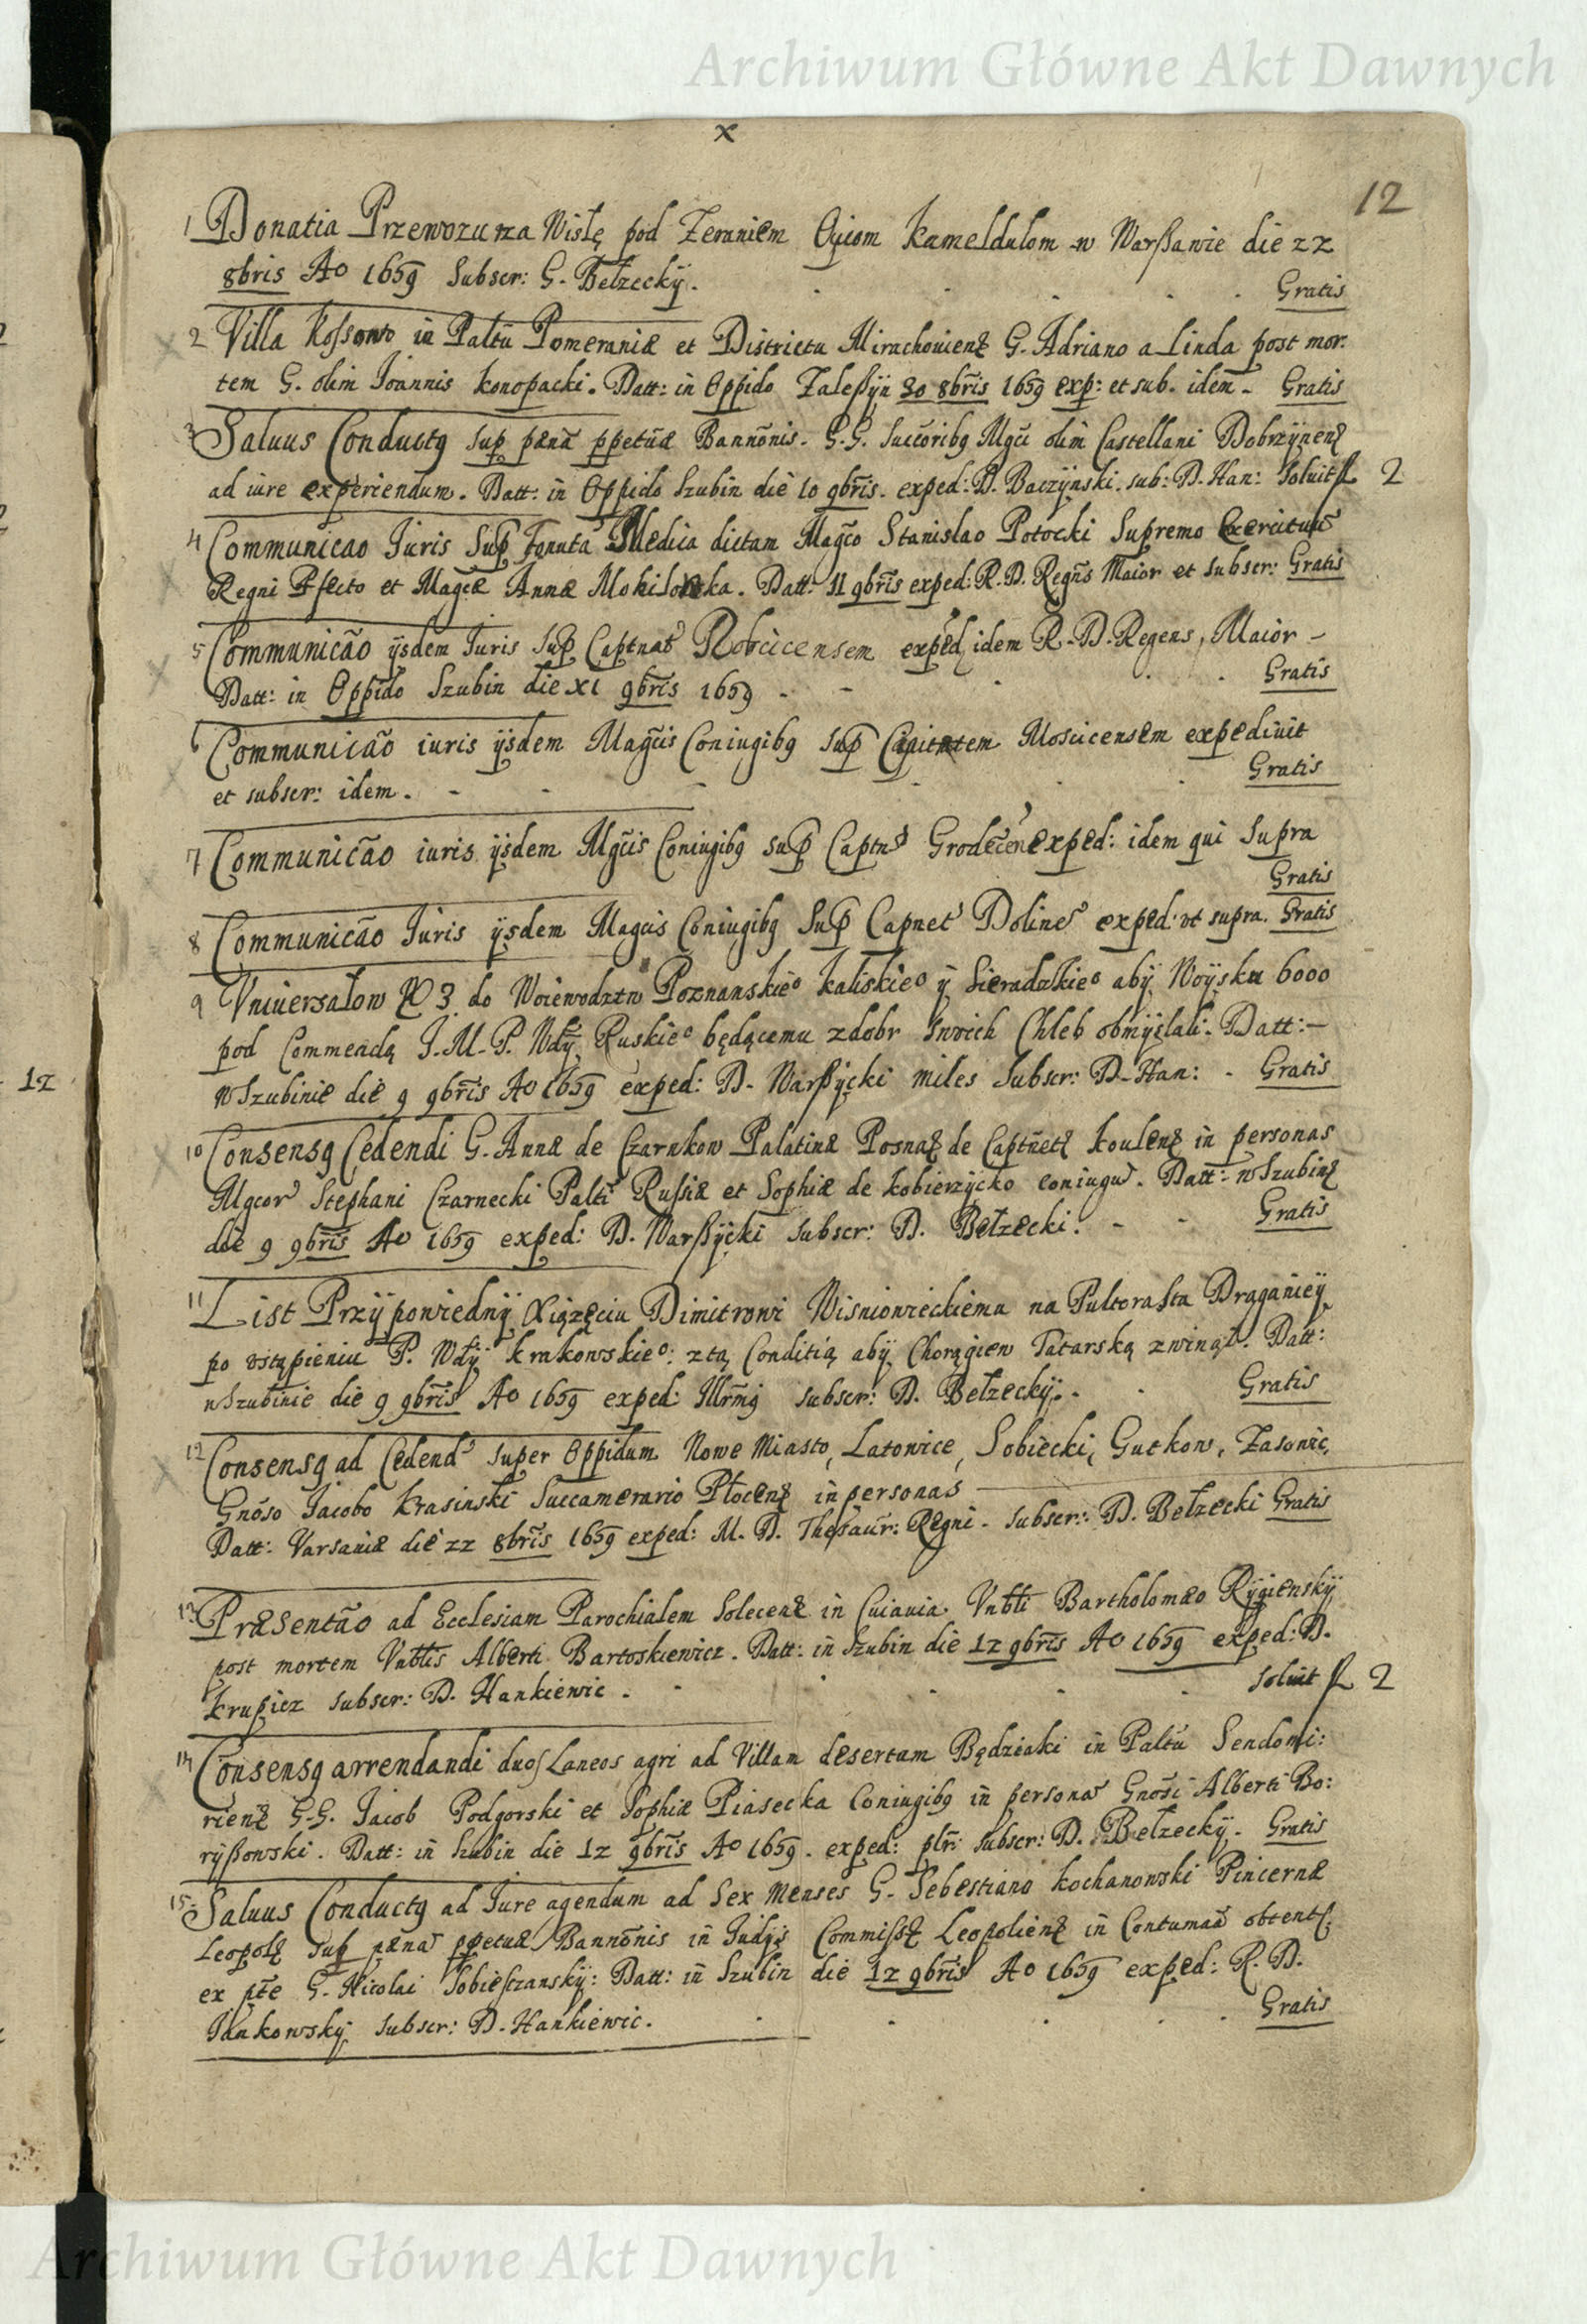 Archiwum Główne Akt Dawnych
x
12
1 Donatia Przewozu na Wisłę pod Zeraniem Oyiom Kameldulom w Warßawie die 22
8bris Ao 1659 Subscr: G. Bełzeckÿ. Gratis
2 Villa Kossowo in Paltũ Pomeraniæ et Districtu Mirachouienz G. Adriano a Linda post mor:
tem G. olim Joannis Konopacki. Datt: in Oppido Zaleßÿn 30 8bris 1659 exp: et sub. idem - Gratis
3 Saluus Conductq sup pænã ppetuæ Bannõnis. G.G. Succõribq Mgci olim Castellani Dobrzÿnenz
ad iure experiendum. Datt: in Oppido Szubin die 10 9bris. exped: D. Baczÿnski. sub: D. Han: Soluit fl 2
4 Communicao Juris Sup Tenutã Medica dictam Magco Stanislao Potocki Supremo Exercitus
Regni Pfecto et Magcæ Annæ Mohiloncka. Datt: 11 9bris exped: R. D. Regns Maior et subscr: Gratis
5 Communicão ÿsdem Juris Sup Captnat Robcicensem exped idem R. D. Regens, Maior -
Datt: in Oppido Szubin die XI 9bris 1659 - - Gratis
6 Communicão iuris ÿsdem Magcis Coniugibq Sup Moscicensem expediuit
et subscr: idem. - - Gratis
7 Communicão iuris ÿsdem Mgcis Coniugibq sup Captns Grodecen exped: idem qui Supra
Gratis
8 Communicão Juris ÿsdem Magcis Coniugibq Sup Capnet Doline exped: ut supra. Gratis
9 Vniuersałow No 3 do Woiewodztw Poznanskieo Kaliskieo ÿ Sieradzkieo abÿ Woÿsku 6000
pod Commendą J.M.P. Wdÿ Ruskieo będącemu z dobr Swoich Chleb obmÿslali. Datt: -
w Szubinie die 9 9bris Ao 1659 exped: D. Warßÿcki miles Subscr: D. Han: - Gratis
12
10 Consensq Cedendi G. Annæ de Czarnkow Palatinæ Posnaz de Captnetz Koulenz in personas
Mgcor Stephani Czarnecki Palti Russiæ et Sophiæ de Kobierzÿcko coniugu. Datt: w Szubinz
die 9 9bris Ao 1659 exped: D. Warßÿcki subscr: D. Bełzecki. - - Gratis
11 List Przÿpowiednÿ Xiążęciu Dimitrowi Wisniowieckiemu na Pultorasta Draganieÿ
po ustąpieniu P. Wdÿ Krakowskieo: z tą Conditią abÿ Chorągiew Tatarską zwinął. Datt:
w Szubinie die 9 9bris Ao 1659 exped: Illrmq subscr: D. Bełzeckÿ. Gratis
12 Consensq ad Cedend Super Oppidum Nowe Miasto, Latowice, Sobiecki, Gutkow, Zasonic,
Gnõso Jacobo Krasinski Succamerario Płocenz in personas
Datt: Varsauiæ die 22 8bris 1659 exped: M. D. Thesaur: Regni - subscr: D. Bełzecki Gratis
13 Præsentão ad Ecclesiam Parochialem Solecenz in Cuiauia Vnbli Bartholomæo Rÿgienskÿ
post mortem Vnblis Alberti Bartoskiewicz. Datt: in Szubin die 12 9bris Ao 1659 exped: D.
Krupicz subscr: D. Hankiewic. - soluit fl 2
14 Consensq arrendandi duos Laneos agri ad Villam desertam Będziaki in Paltu Sendomi:
rienz G.G. Jacob Podgorski et Sophiæ Piasecka Coniugibq in personã Gnõsi Alberti Bo:
rÿßowski. Datt: in Szubin die 12 9bris Ao 1659. exped: plr: subscr: D. Bełzeckÿ. Gratis
15 Saluus Conductq ad Jure agendum ad Sex Menses G. Sebestiano Kochanowski Pincernæ
Leopolz sup pænã ppetuæ Bannõnis in Judÿs Commissz Leopolienz in Contumaã obtents
ex pte G. Nicolai Sobiesczanskÿ: Datt: in Szubin die 12 9bris Ao 1659 exped: R. D.
Jankowskÿ subscr: D. Hankiewic. Gratis
Archiwum Główne Akt Dawnych